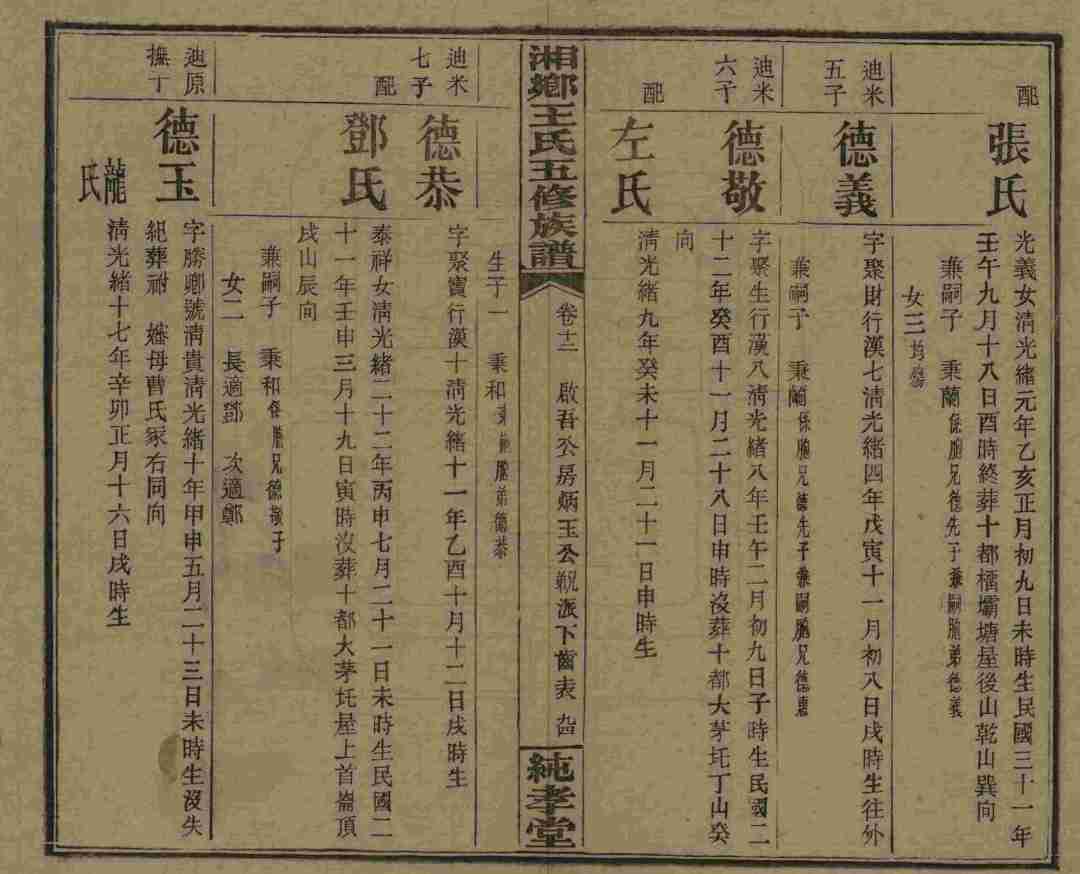 配
張氏
光義女清光緒元年乙亥正月初九日未時生民國三十一年
壬午九月十八日酉時終葬十都檑壩塘屋後山乾山巽向
兼嗣子 秉蘭係胞兄德先子兼嗣胞弟德義
女三均殤
迪米
五子
德義
字聚財行漢七清光緒四年戊寅十一月初八日戌時生往外
兼嗣子 秉蘭係胞兄德先子兼嗣胞兄德惠
迪米
六子
德敬
字聚生行漢八清光緒八年壬午二月初九日子時生民國二
十二年癸酉十一月二十八日申時沒葬十都大茅圫丁山癸
向
配
左氏
清光緒九年癸未十一月二十一日申時生
湘鄉王氏五修族譜
卷十二
啟吾公房炳玉公親派下齒表
純孝堂
生子一 秉和兼祧胞弟德恭
迪米
七子
德恭
字聚寶行漢十清光緒十一年乙酉十月十二日戌時生
配
鄧氏
泰祥女清光緒二十二年丙申七月二十一日未時生民國二
十一年壬申三月十九日寅時沒葬十都大茅圫屋上首崙頂
戌山辰向
兼嗣子 秉和係胞兄德敬子
女二 長適鄧 次適鄭
迪原
撫子
德玉
字勝卿號清貴清光緒十年甲申五月二十三日未時生沒失
紀葬祔 嬸母曹氏冢右同向
龍氏
清光緒十七年辛卯正月十六日戌時生